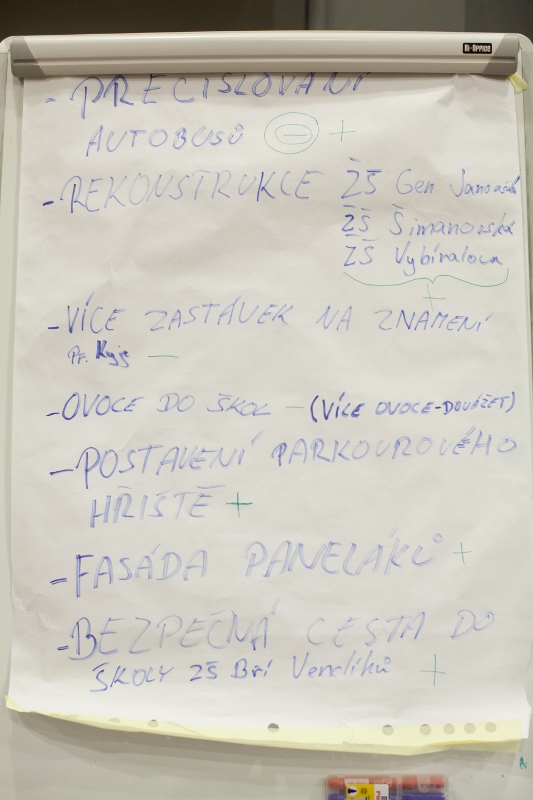 BI-OFFICE
- PŘEČÍSLOVÁNÍ
AUTOBUSŮ (-) +
- REKONSTRUKCE ZŠ Gen Janouška
ZŠ Šimanovská
ZŠ Vybíralova
+
- VÍCE ZASTÁVEK NA ZNAMENÍ
Př. Kyje -
- OVOCE DO ŠKOL - (VÍCE OVOCE-DOVÁŽET)
- POSTAVENÍ PARKOUROVÉHO
HŘIŠTĚ +
- FASÁDA PANELÁKŮ +
- BEZPEČNÁ CESTA DO
ŠKOLY ZŠ Bří Venclíků +